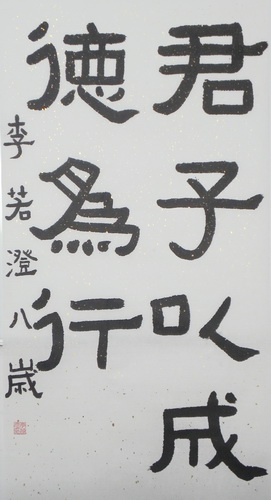 君子以成
德為行
李若澄八歲